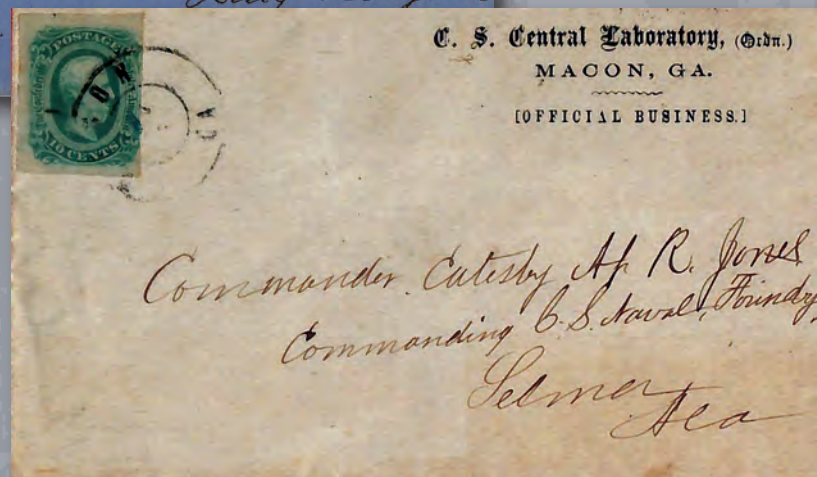 POSTAGE
10 CENTS
C. S. Central Laboratory, (Ordn.)
MACON, GA.
[OFFICIAL BUSINESS.]
Commander. Catesby Ap R. Jones
Commanding C. S. Naval, Foundry
Selma
Ala